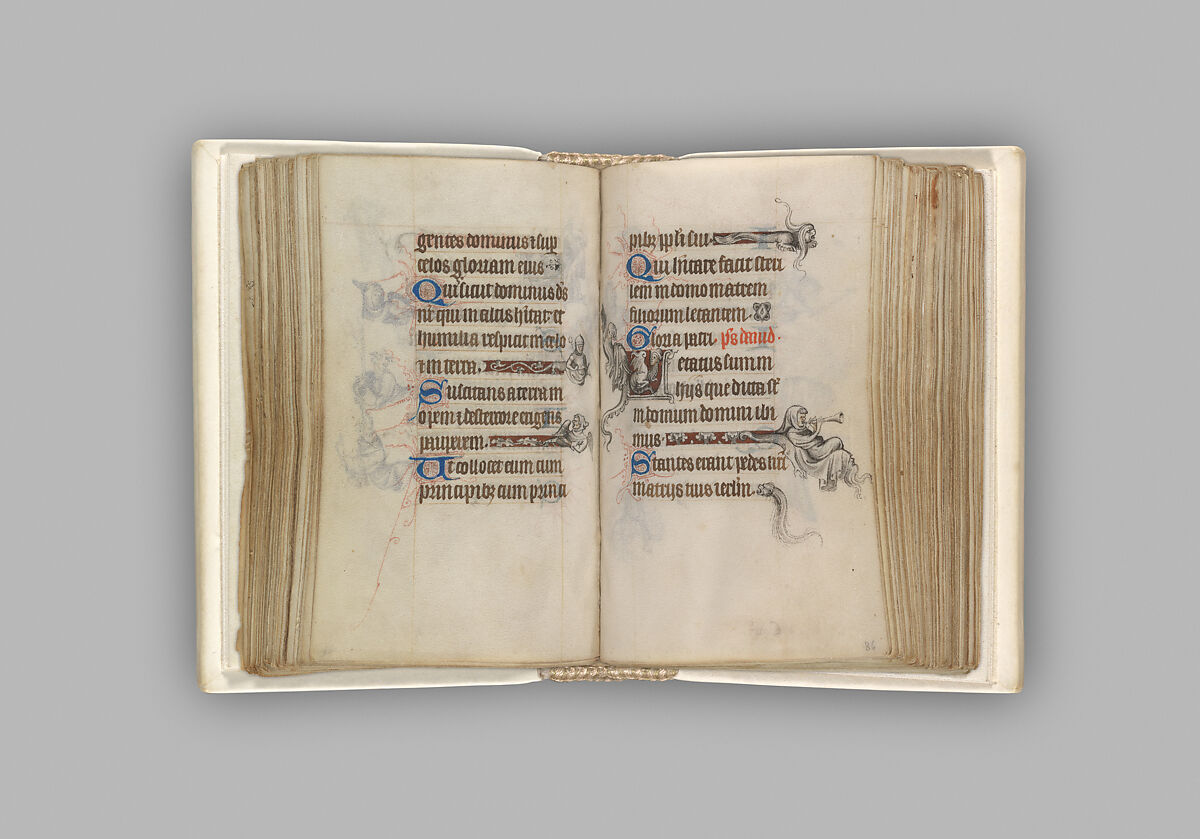 gentes dominus ⁊ sup
celos gloriam eius
Quis sicut dominus ds
nr qui in altis hitat et
humilia respicit in celo
⁊ in terra.
Suscitans a terra in
opem ⁊ de stercore erigens
pauperem.
Ut collocet eum cum
principibꝫ cum princi
pibꝫ ppli sui.
Qui hitare facit steri
lem in domo matrem
filiorum letantem.
Gloria patri. ps dauid.
Letatus sum in
hijs que dicta st
in domum domini ibi
mus.
Stantes erant pedes nri
in atrijs tuis ierlm.
86